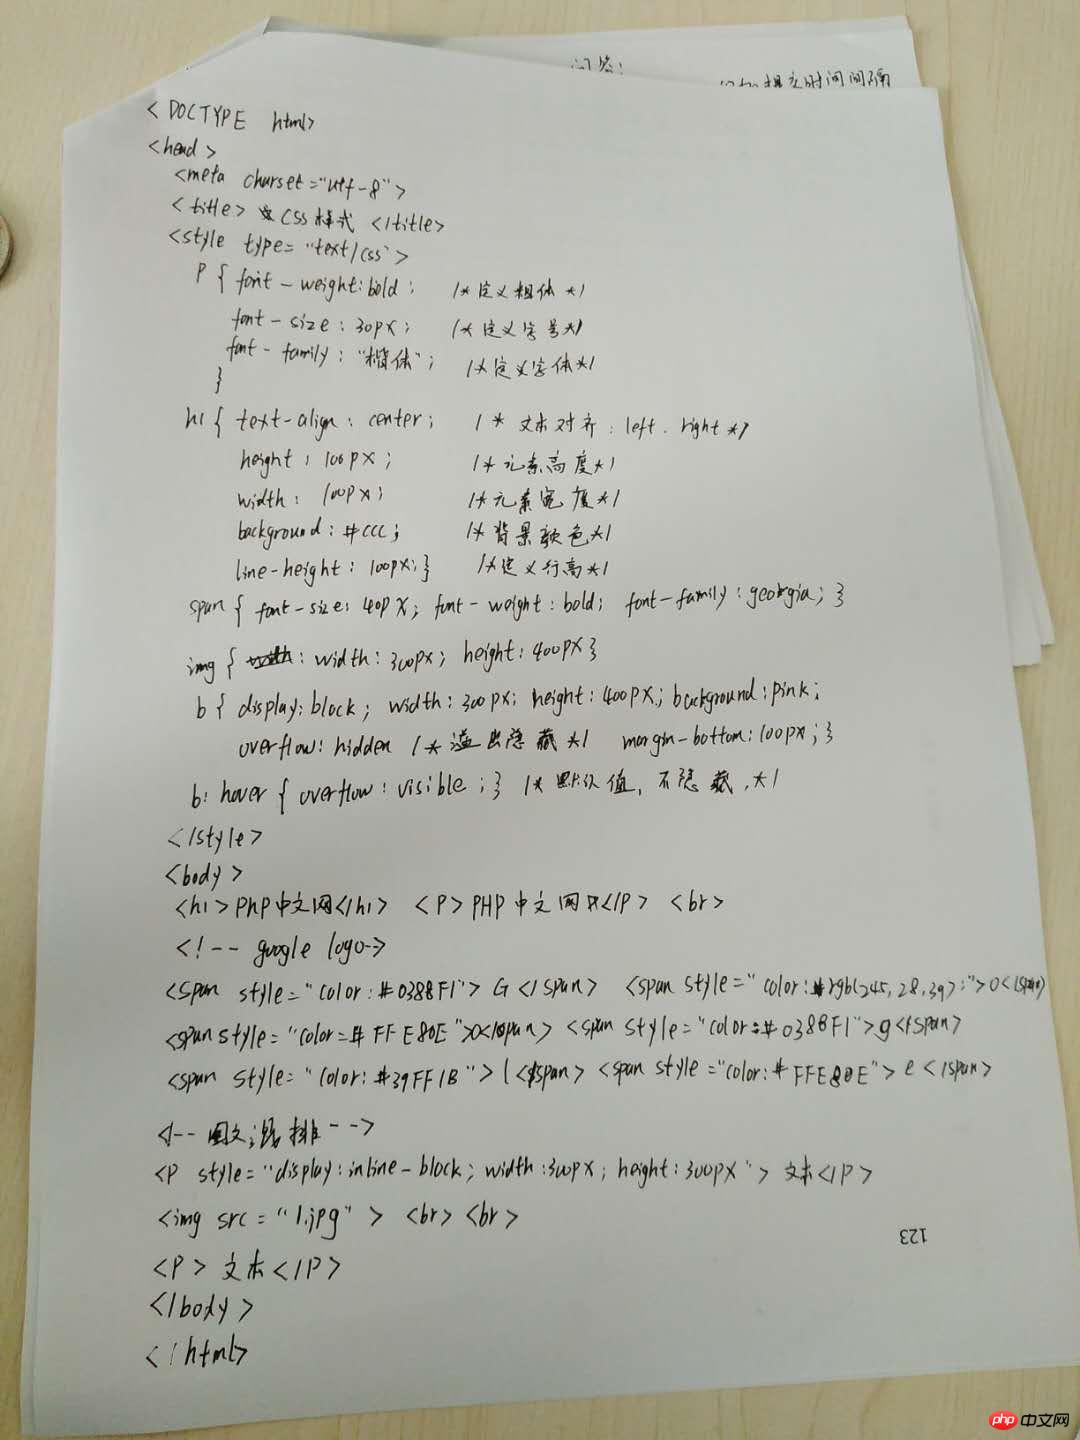 问答:
时间间隔
< DOCTYPE html>
<head>
<meta charset="utf-8">
<title> CSS样式 </title>
<style type="text/css">
P { font-weight:bold; /*定义粗体*/
font-size:30px; /*定义字号*/
font-family:"楷体"; /*定义字体*/
}
h1 { text-align: center; /* 文本对齐: left. right */
height: 100px; /*元素高度*/
width: 100px; /*元素宽度*/
background: #ccc; /*背景颜色*/
line-height: 100px;} /*定义行高*/
span { font-size: 40px; font-weight: bold; font-family: georgia; }
img { : width: 300px; height: 400px }
b { display: block; width: 300px; height: 400px; background: pink;
overflow: hidden /*溢出隐藏*/ margin-bottom: 100px; }
b: hover { overflow: visible; } /* 默认值, 不隐藏. */
</style>
<body>
<h1>PhP中文网</h1> <P>PHP中文网</P> <br>
<!-- google logo->
<span style="color:#0388F1"> G </span> <span style="color:rgb(245,28,39);">O</span>
<span style="color=# FFE80E">O</span> <span style="color:#0388F1">g</span>
<span style="color:#39FF1B">l</span> <span style="color:#FFE80E">e</span>
<!-- 图文混排 -->
<P style="display:inline-block; width:300px; height:300px"> 文本</P>
<img src="1.jpg"> <br><br>
123
<P> 文本</P>
</body>
</html>
php 中文网